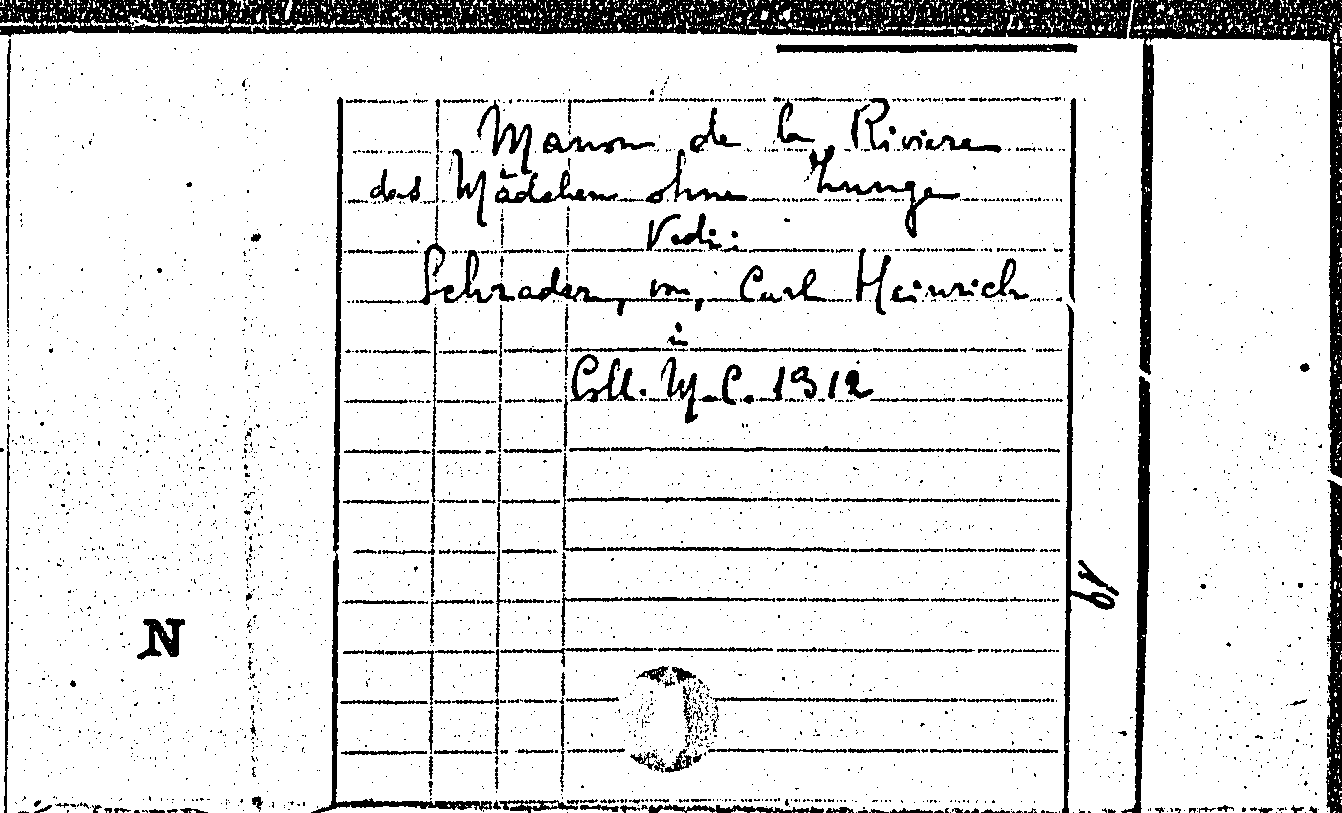 Manon de la Riviere
das Mädchen ohne Zunge
Vedi:
Schrader, von, Carl Heinrich
in
Coll. M.C. 1912
N